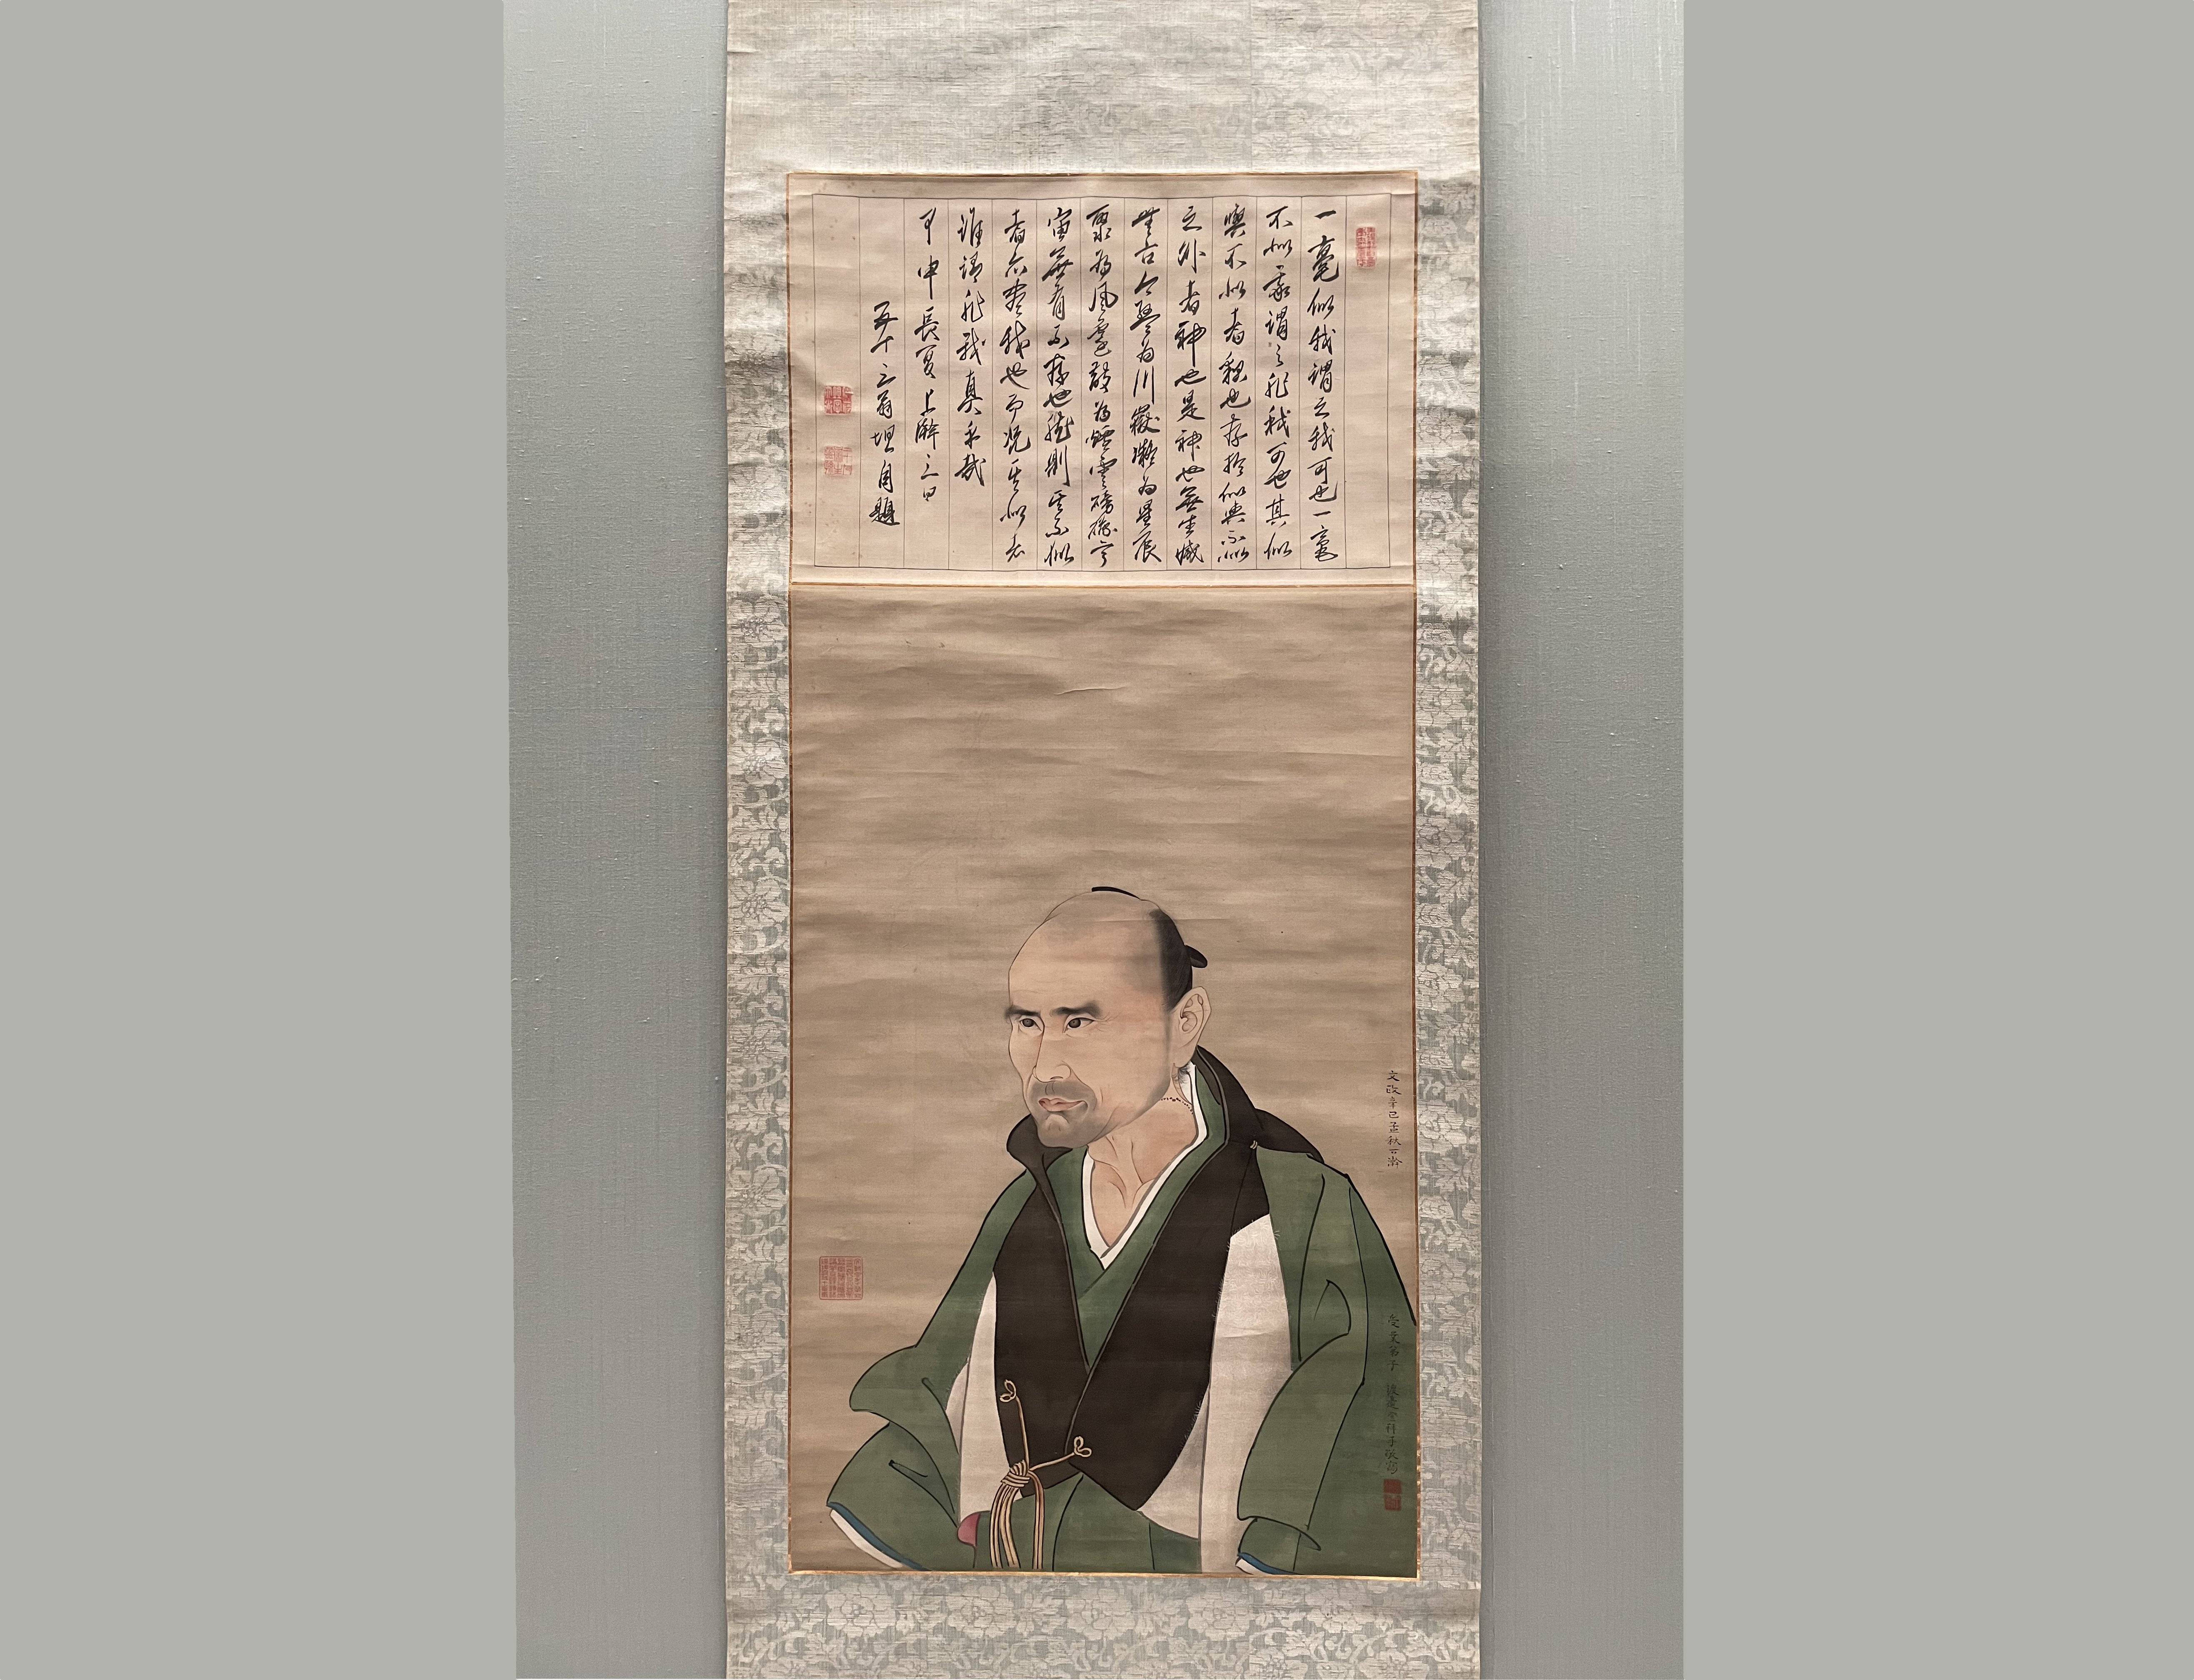 一毫似我謂之我可也一毫
不似我謂之非我可也其似
與不似者貌也存於似與不似
之外者神也是神也無生滅
無古今為川嶽凝為星辰
聚為風霆散為煙雲磅礴宇
宙無有不存也然則其不似
者亦盡我也而況其似者
誰謂非我真乎哉
甲申長夏上澣之日
五十三翁坦自題
文政辛巳孟秋下澣
受業弟子 渡邊登拝手敬寫